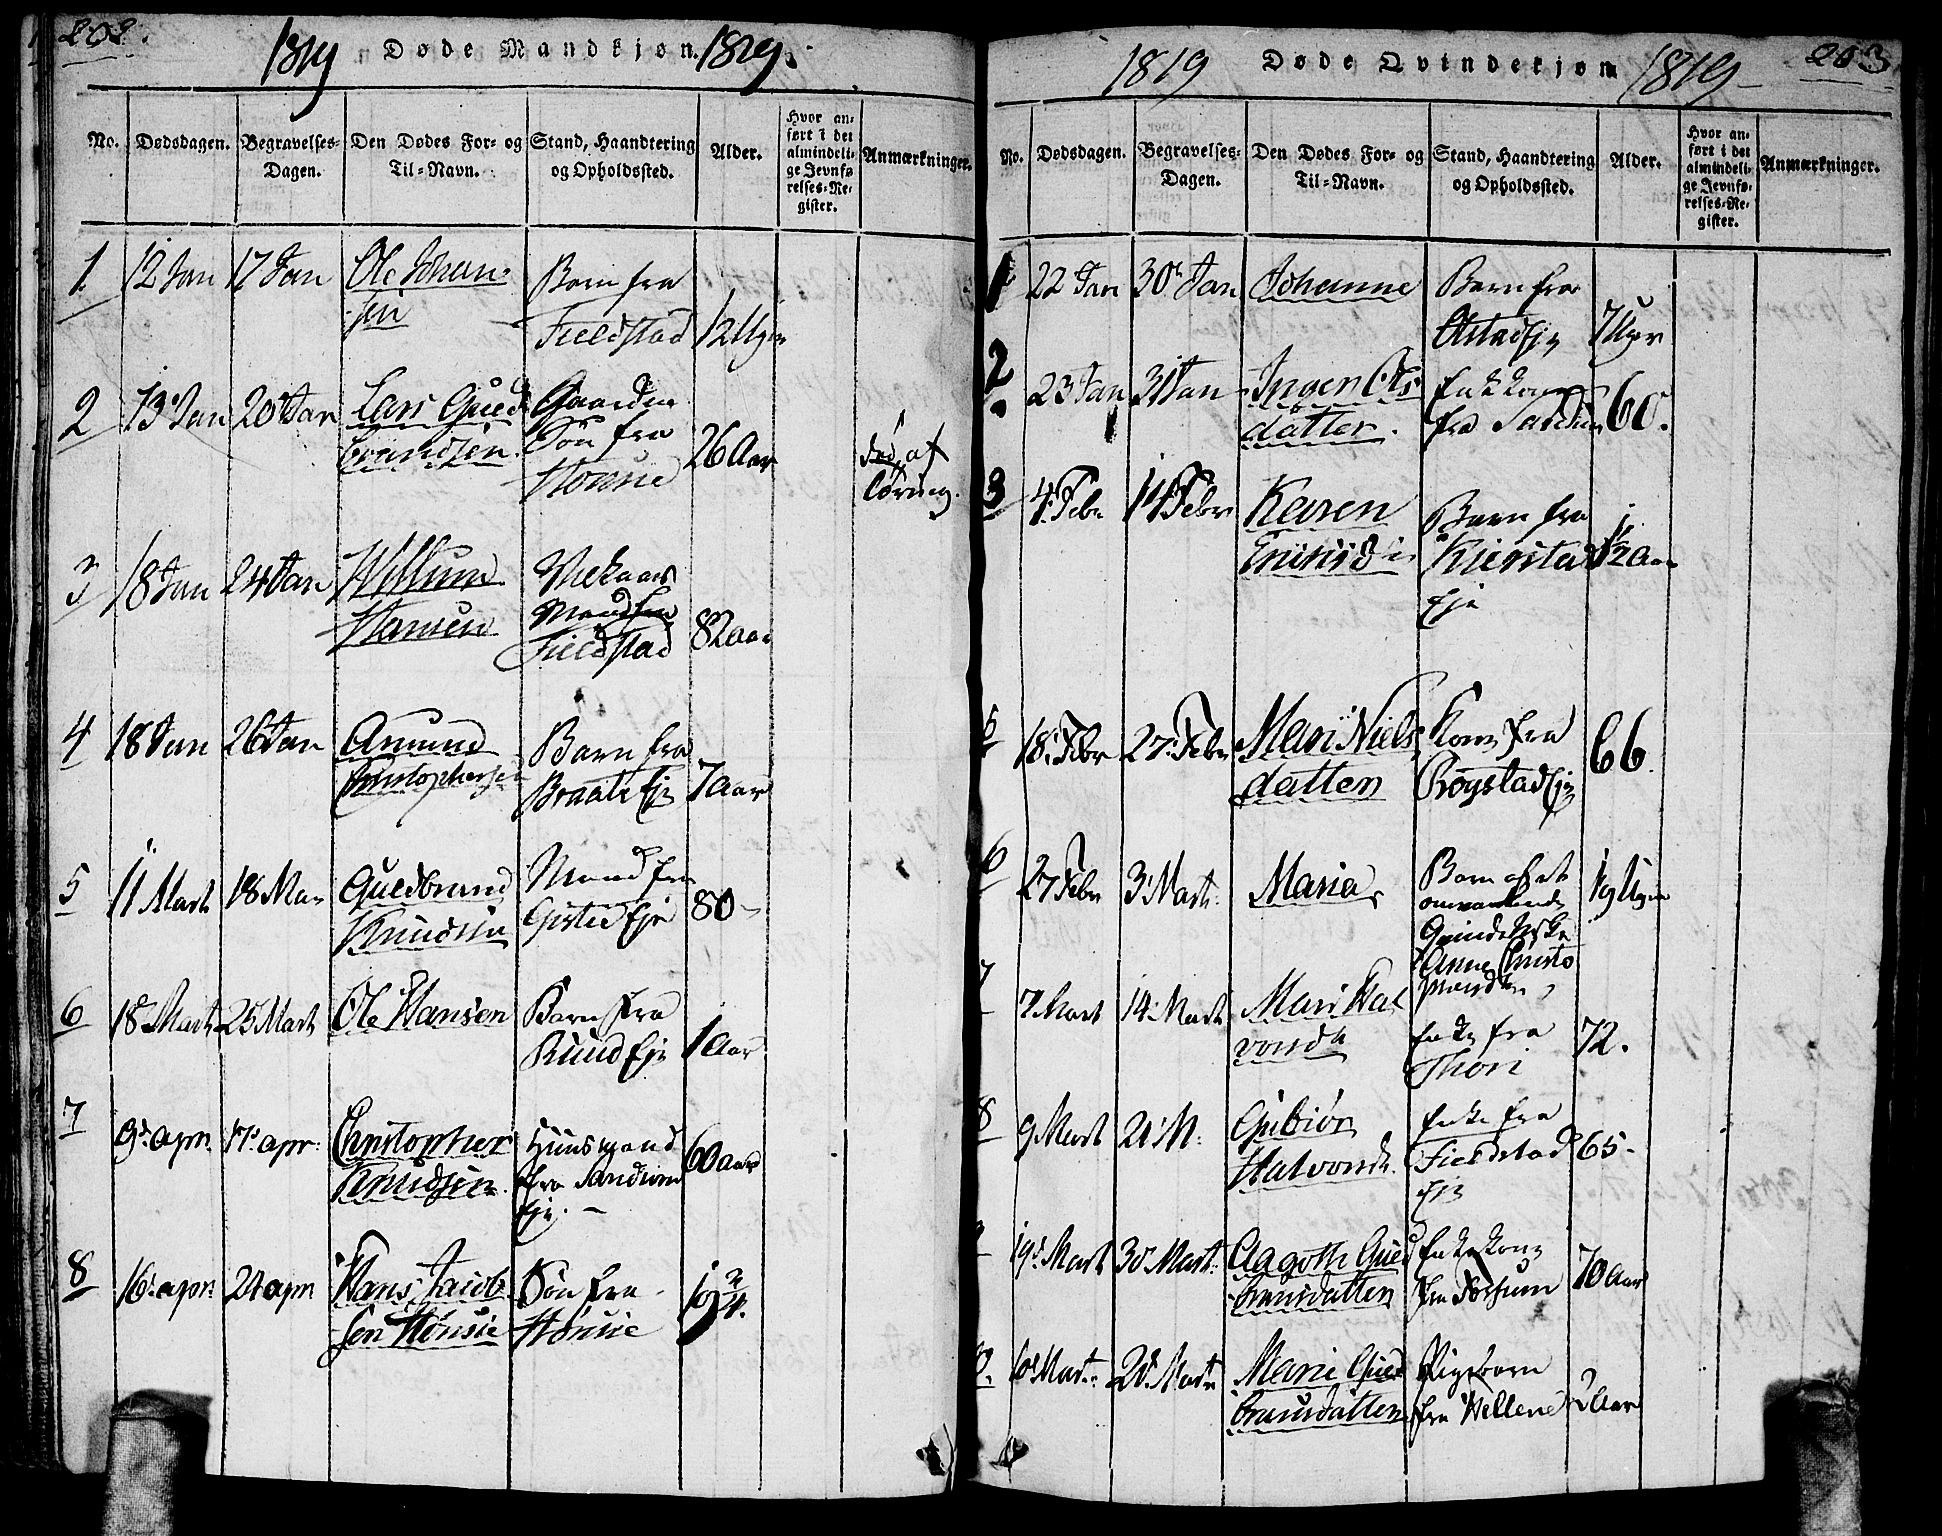 202.
1819 Døde Mandkjøn. 1819.
No. Dødsdagen. Begravelses-Dagen. Den Dødes For- og Til-Navn. Stand, Haandtering og Opholdssted. Alder. Hvor anført i det almindelige Jevnførelses-Register. Anmærkninger.
1 12 Jan 17 Jan Ole Johan-
sen
Barn fra
Fieldstad 12 Uger
2 13 Jan 20 Jan Lars Gued
brandsen
Gaardm
Søn fra
Hønsie 26 Aar
af
3 18 Jan 24 Jan Willum
Hansen
Mand fra
Fieldstad 82 aar
4 18 Jan 26 Jan Amund
Christophersen
Barn fra
Braate Eje 7 Aar
5 11 Marts 18 Mar Guedbrand
Knudsen
Mand fra
Gisted Eje 80
6 18 Marts 25 Marts Ole Hansen
Barn fra
Ruud Eje 1 Aar
7 9 apr. 17 apr. Christopher
Knudsen
Huusmand
fra Sandum
Eje. 60 aar
8 16 apr. 24 apr Hans Jacob
sen Hønsie
Søn fra
Hønsie 19 3/4.
203
1819 Døde Qvindekjøn 1819
No. Dødsdagen. Begravelses-Dagen. Den Dødes For- og Til-Navn. Stand, Haandtering og Opholdssted. Alder. Hvor anført i det almindelige Jevnførelses-Register. Anmærkninger.
1 22 Jan 30 Jan Johanne
Barn fra
7 Uger
2 23 Jan 31 Jan Ingen Ols
datter.
Enkekone
fra 60.
3 4 Febr 14 Febr Karen
Barn fra
Kierstad
Eje 1/2 Aar
5 18 Febr 27 Febr Mari Niels
datter
Kone fra
Røgstad Eje 66
6 27 Febr 3 Marts Maria
Barn af et
omvankende
Qvindeneske
Anne Christo
19 Uger
7 7 Mart 14 Marts Mari Hal
vorsd
Enke fra
Thori 72.
8 9 Mart 21 M. Gubiør
Halvorsd.
Enke fra
Fieldstad
Eje 65.
9 19 Mart 30 Mart. Aagoth Gued
bransdatter
Enkekone
fra Forsum 70 aar
Mart. 28 Mart. Marie Gued
bransdatter
Pigebarn
fra Hellerud 2 Aar